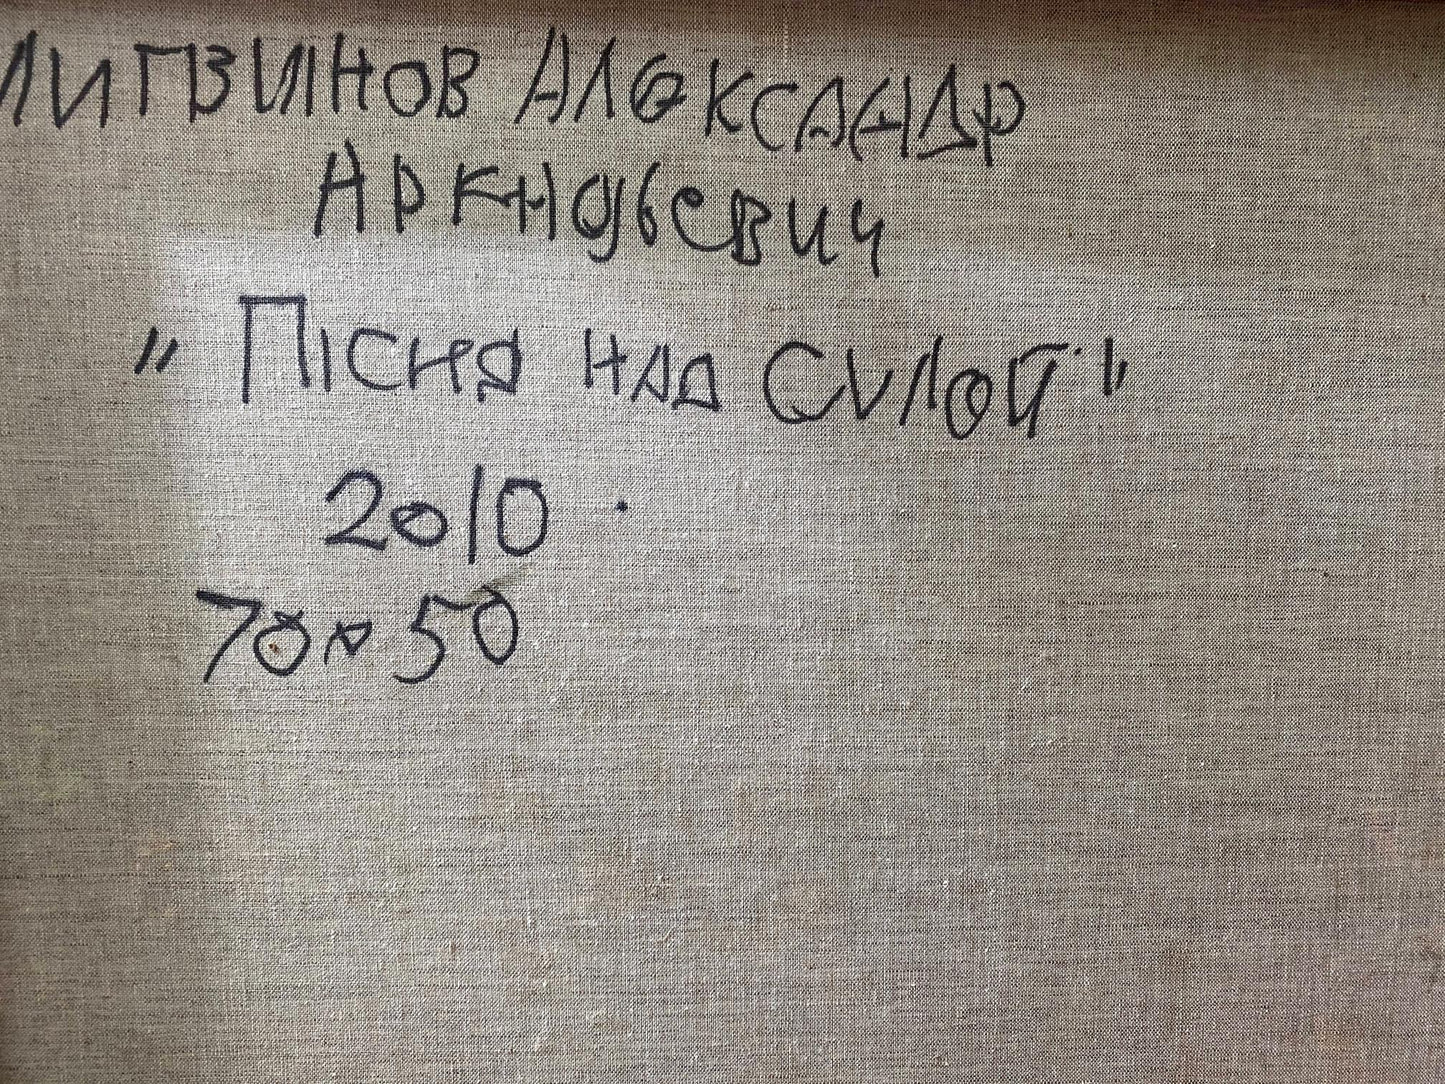 ЛИТВИНОВ АЛЕКСАНДР
АРКАДЬЕВИЧ
"ПІСНЯ НАД СУЛОЙ"
2010.
70x50